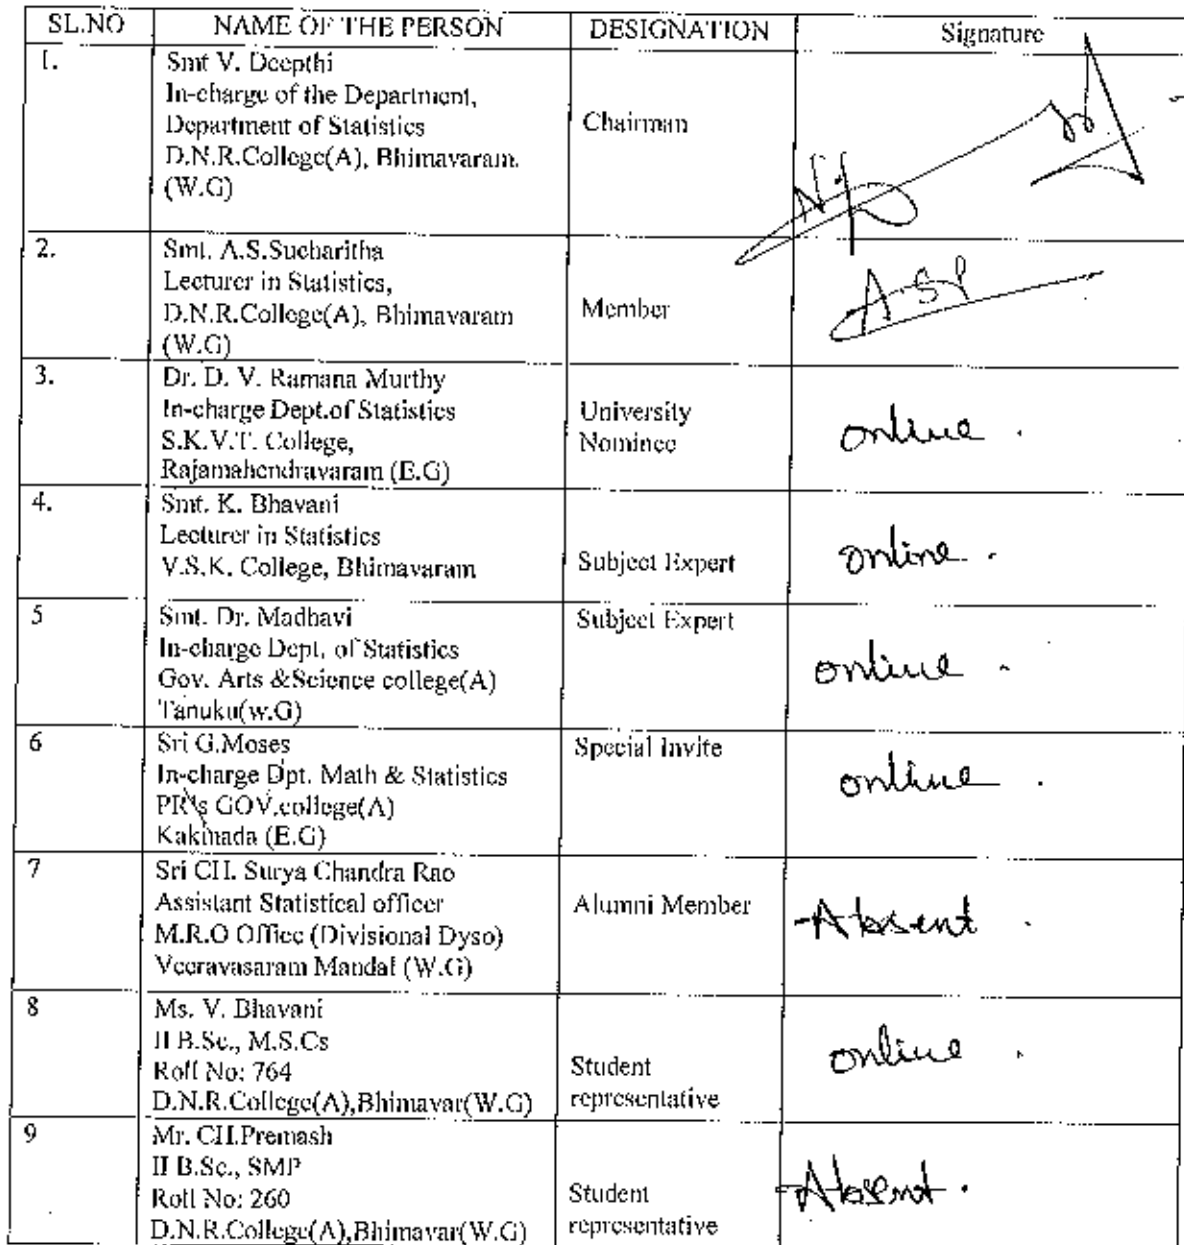 SL.NO NAME OF THE PERSON DESIGNATION Signature
1. Smt V. Deepthi
In-charge of the Department,
Department of Statistics
D.N.R.College(A), Bhimavaram.
(W.G)
Chairman
2. Smt. A.S.Sucharitha
Lecturer in Statistics,
D.N.R.College(A), Bhimavaram
(W.G)
Member
3. Dr. D. V. Ramana Murthy
In-charge Dept.of Statistics
S.K.V.T. College,
Rajamahendravaram (E.G)
University
Nominee
online .
4. Smt. K. Bhavani
Lecturer in Statistics
V.S.K. College, Bhimavaram
Subject Expert
online .
5 Smt. Dr. Madhavi
In-charge Dept. of Statistics
Gov. Arts &Science college(A)
Tanuku(w.G)
Subject Expert
online .
6 Sri G.Moses
In-charge Dpt. Math & Statistics
GOV.college(A)
Kakinada (E.G)
Special Invite
online .
7 Sri CH. Surya Chandra Rao
Assistant Statistical officer
M.R.O Office (Divisional Dyso)
Veeravasaram Mandal (W.G)
Alumni Member
Absent .
8 Ms. V. Bhavani
II B.Sc., M.S.Cs
Roll No: 764
D.N.R.College(A),Bhimavar(W.G)
Student
representative
online .
9 Mr. CH.Premash
II B.Sc., SMP
Roll No: 260
D.N.R.College(A),Bhimavar(W.G)
Student
representative
Absent .